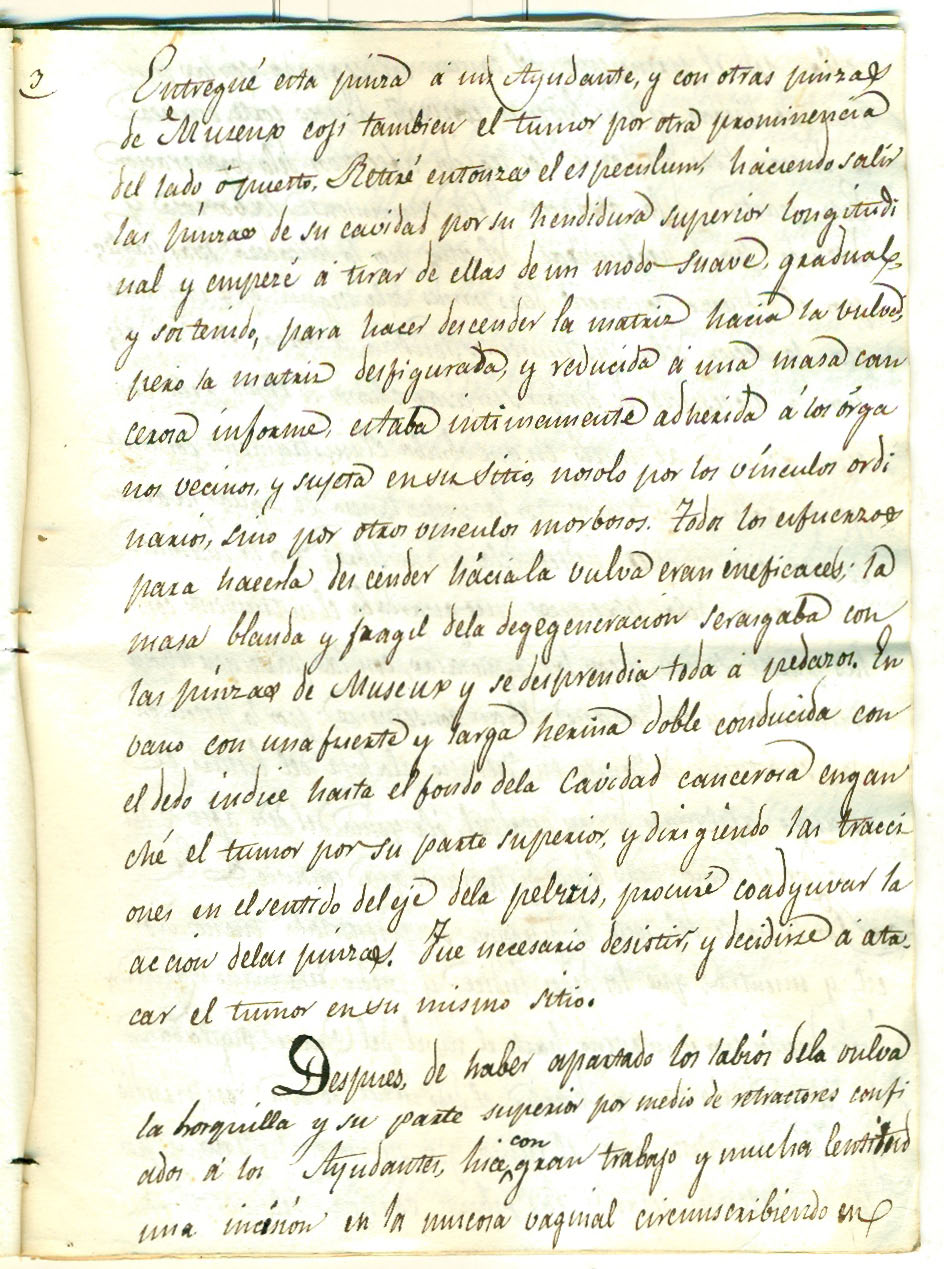 3
Entregué esta pinza á un Ayudante, y con otras pinzas
de Museux cojí tambien el tumor por otra prominencia
del lado ópuesto. Retiré entonzes el especulum, haciendo salir
las pinzas de su cavidad por su hendidura superior longitudi
nal y empezé á tirar de ellas de un modo suave, gradual
y sostenido, para hacer descender la matriz hacia la vulva,
pero la matriz desfigurada, y reducida á una masa can
cerosa informe, estaba intimamente adherida á los órga
nos vecinos, y sujeta en su sitio, nosolo por los vínculos ordi
narios, sino por otros vinculos morbosos. Todos los esfuerzos
para hacerla descender háciala vulva eran ineficaces; la
masa blanda y fragil dela degegeneracion serasgaba con
las pinzas de Museux y se desprendia toda á pedazos. En
vano con una fuerte y larga herina doble conducida con
el dedo indice hasta el fondo dela Cavidad cancerosa engan
ché el tumor por su parte superior, y dirigiendo las tracci
ones en el sentido del eje dela pelvis, procuré coadyuvar la
accion delas pinzas. Fue necesario desistir, y decidirse á ata-
car el tumor en su mismo sitio.
Despues, de haber apartado los labios dela vulva
la horquilla y su parte superior por medio de retractores confi
ados á los Ayudantes, hice con gran trabajo y mucha lentitud
una incisión en la mucosa vaginal circunscribiendo en